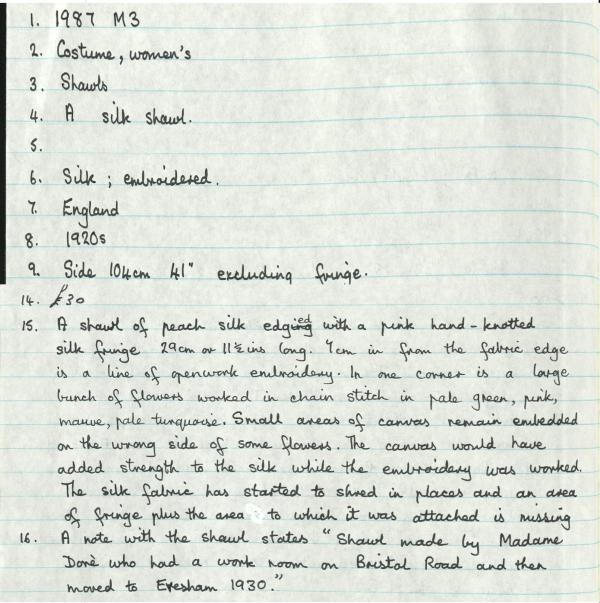 1. 1987 M3
2. Costume, women's
3. Shawls
4. A silk shawl.
5.
6. Silk ; embroidered.
7. England
8. 1920s
9. Side 104cm 41" excluding fringe.
14. £30
15. A shawl of peach silk edged with a pink hand-knotted
silk fringe 29cm or 11½ins long. 7cm in from the fabric edge
is a line of openwork embroidery. In one corner is a large
bunch of flowers worked in chain stitch in pale green, pink,
mauve, pale turquoise. Small areas of canvas remain embedded
on the wrong side of some flowers. The canvas would have
added strength to the silk while the embroidery was worked.
The silk fabric has started to shred in places and an area
of fringe plus the area to which it was attached is missing
16. A note with the shawl states "Shawl made by Madame
Dorè who had a work room on Bristol Road and then
moved to Evesham 1930."